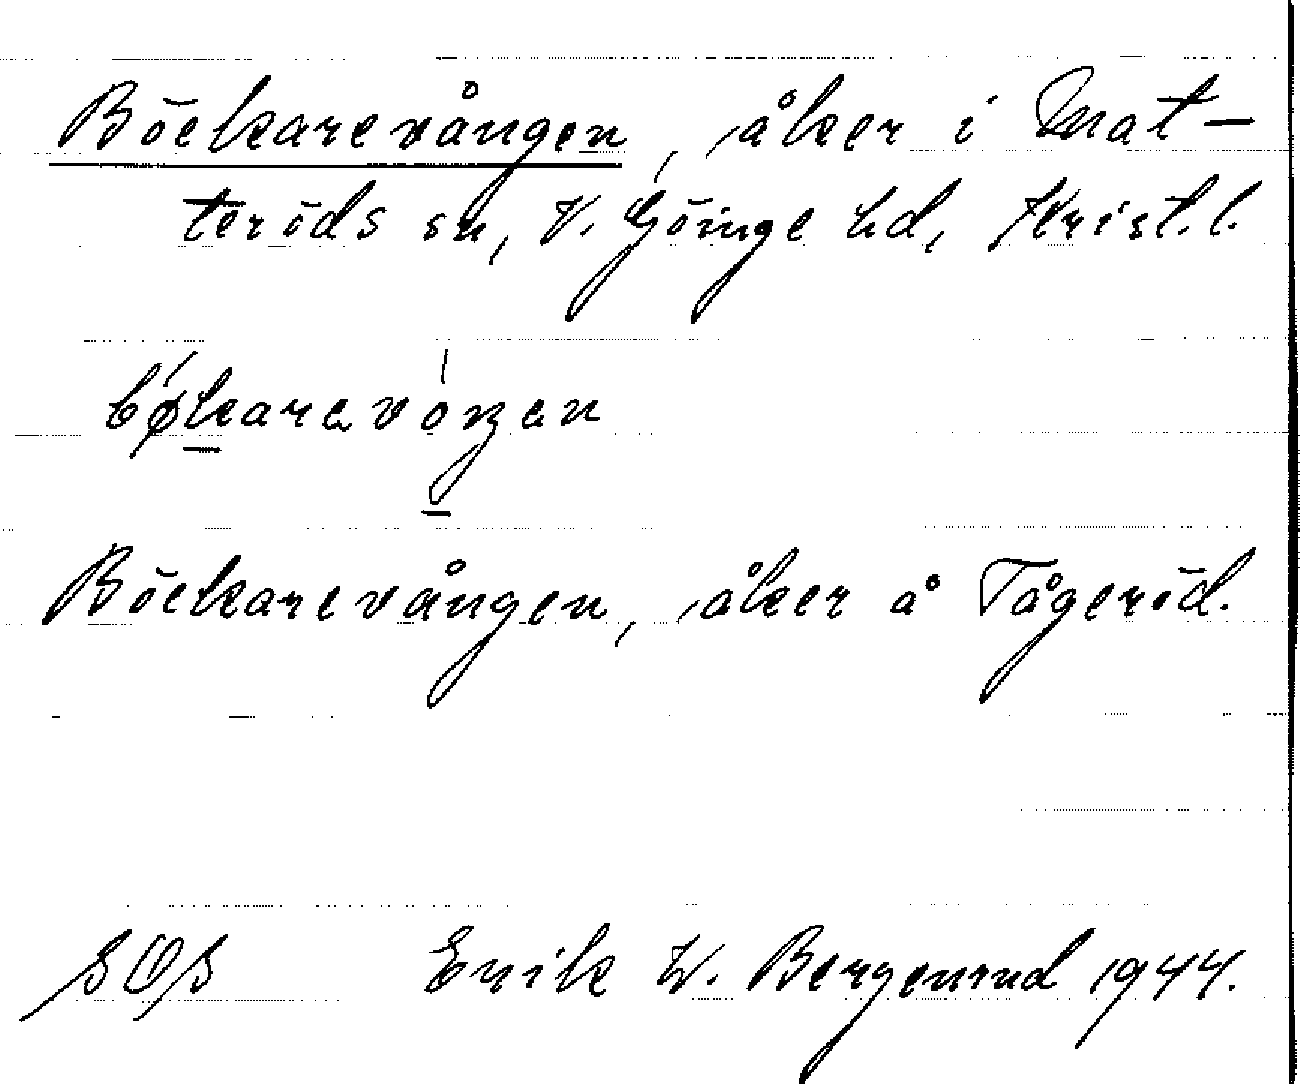 Böckarevången, åker i Mat-
teröds sn, V. Göinge hd, Krist.l.
bøkaravóŋan
Böckarevången, åker å Tågeröd.
SOS Erik W. Bergenrud 1944.